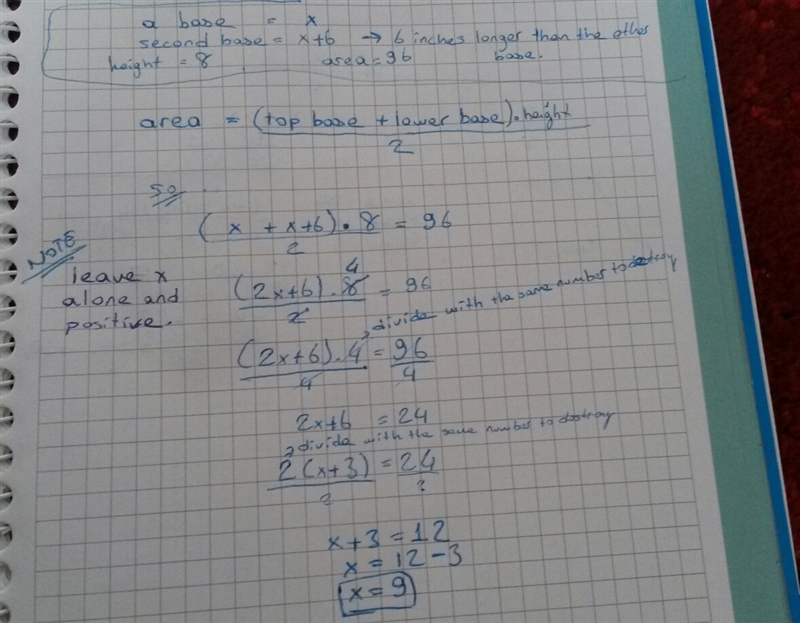 a base = x
second base = x+6 → 6 inches longer than the other base.
height = 8 area = 96
area = (top base + lower base).height
2
so
(x + x+6).8 = 96
2
NOTE
leave x
alone and
positive.
4
(2x+6).8 = 96
2
divide with the same number to destroy
(2x+6).4 = 96
4 4
2x+6 = 24
divide with the same number to destroy
2(x+3) = 24
2 2
x+3 = 12
x = 12-3
x = 9